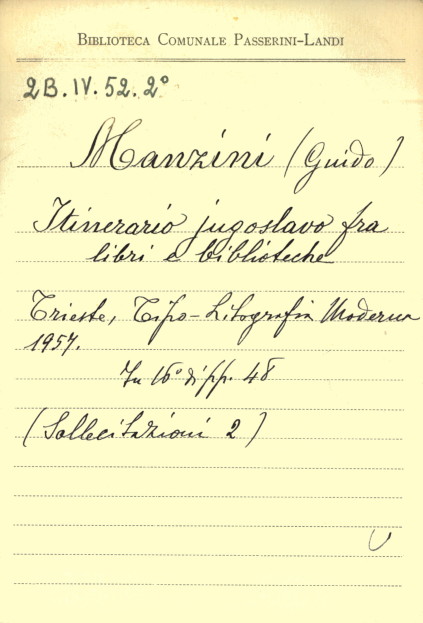 BIBLIOTECA COMUNALE PASSERINI-LANDI
2B.IV.52.2°
Manzini (Guido)
Itinerario jugoslavo fra
libri e biblioteche
Trieste, Tipo-Litografia Moderna
1957.
In 16° di pp. 48
(Sollecitazioni 2)
U